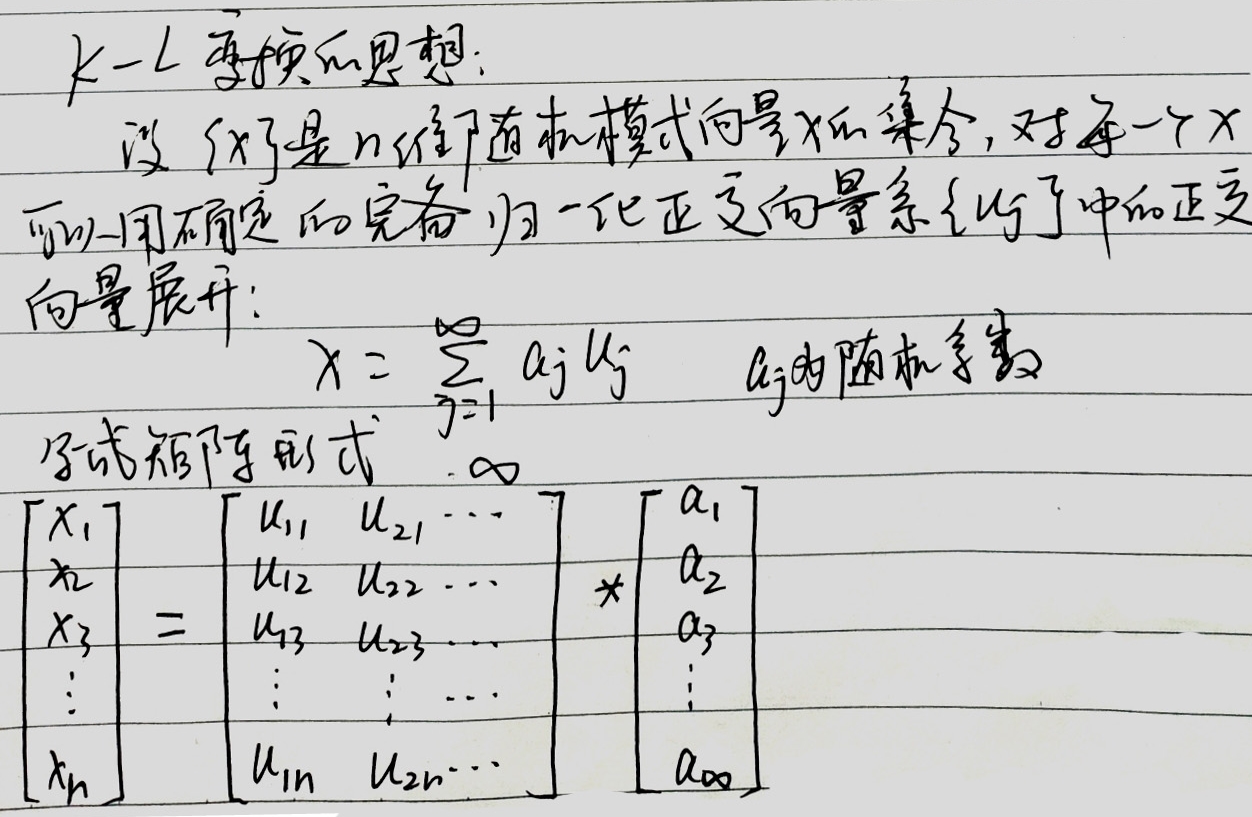 K-L 变换的思想:
设 {x} 是 n 维随机模式向量 x 的集合, 对每一个 x
可以用确定的完备归一化正交向量系 {uj} 中的正交
向量展开:
x = ∑_{j=1}^{∞} aj uj aj为随机系数
写成矩阵形式 ∞
[x1 x2 x3 ⋮ xn] = [u11 u21 ⋯ u12 u22 ⋯ u13 u23 ⋯ ⋮ ⋮ ⋯ u1n u2n ⋯] * [a1 a2 a3 ⋮ a∞]